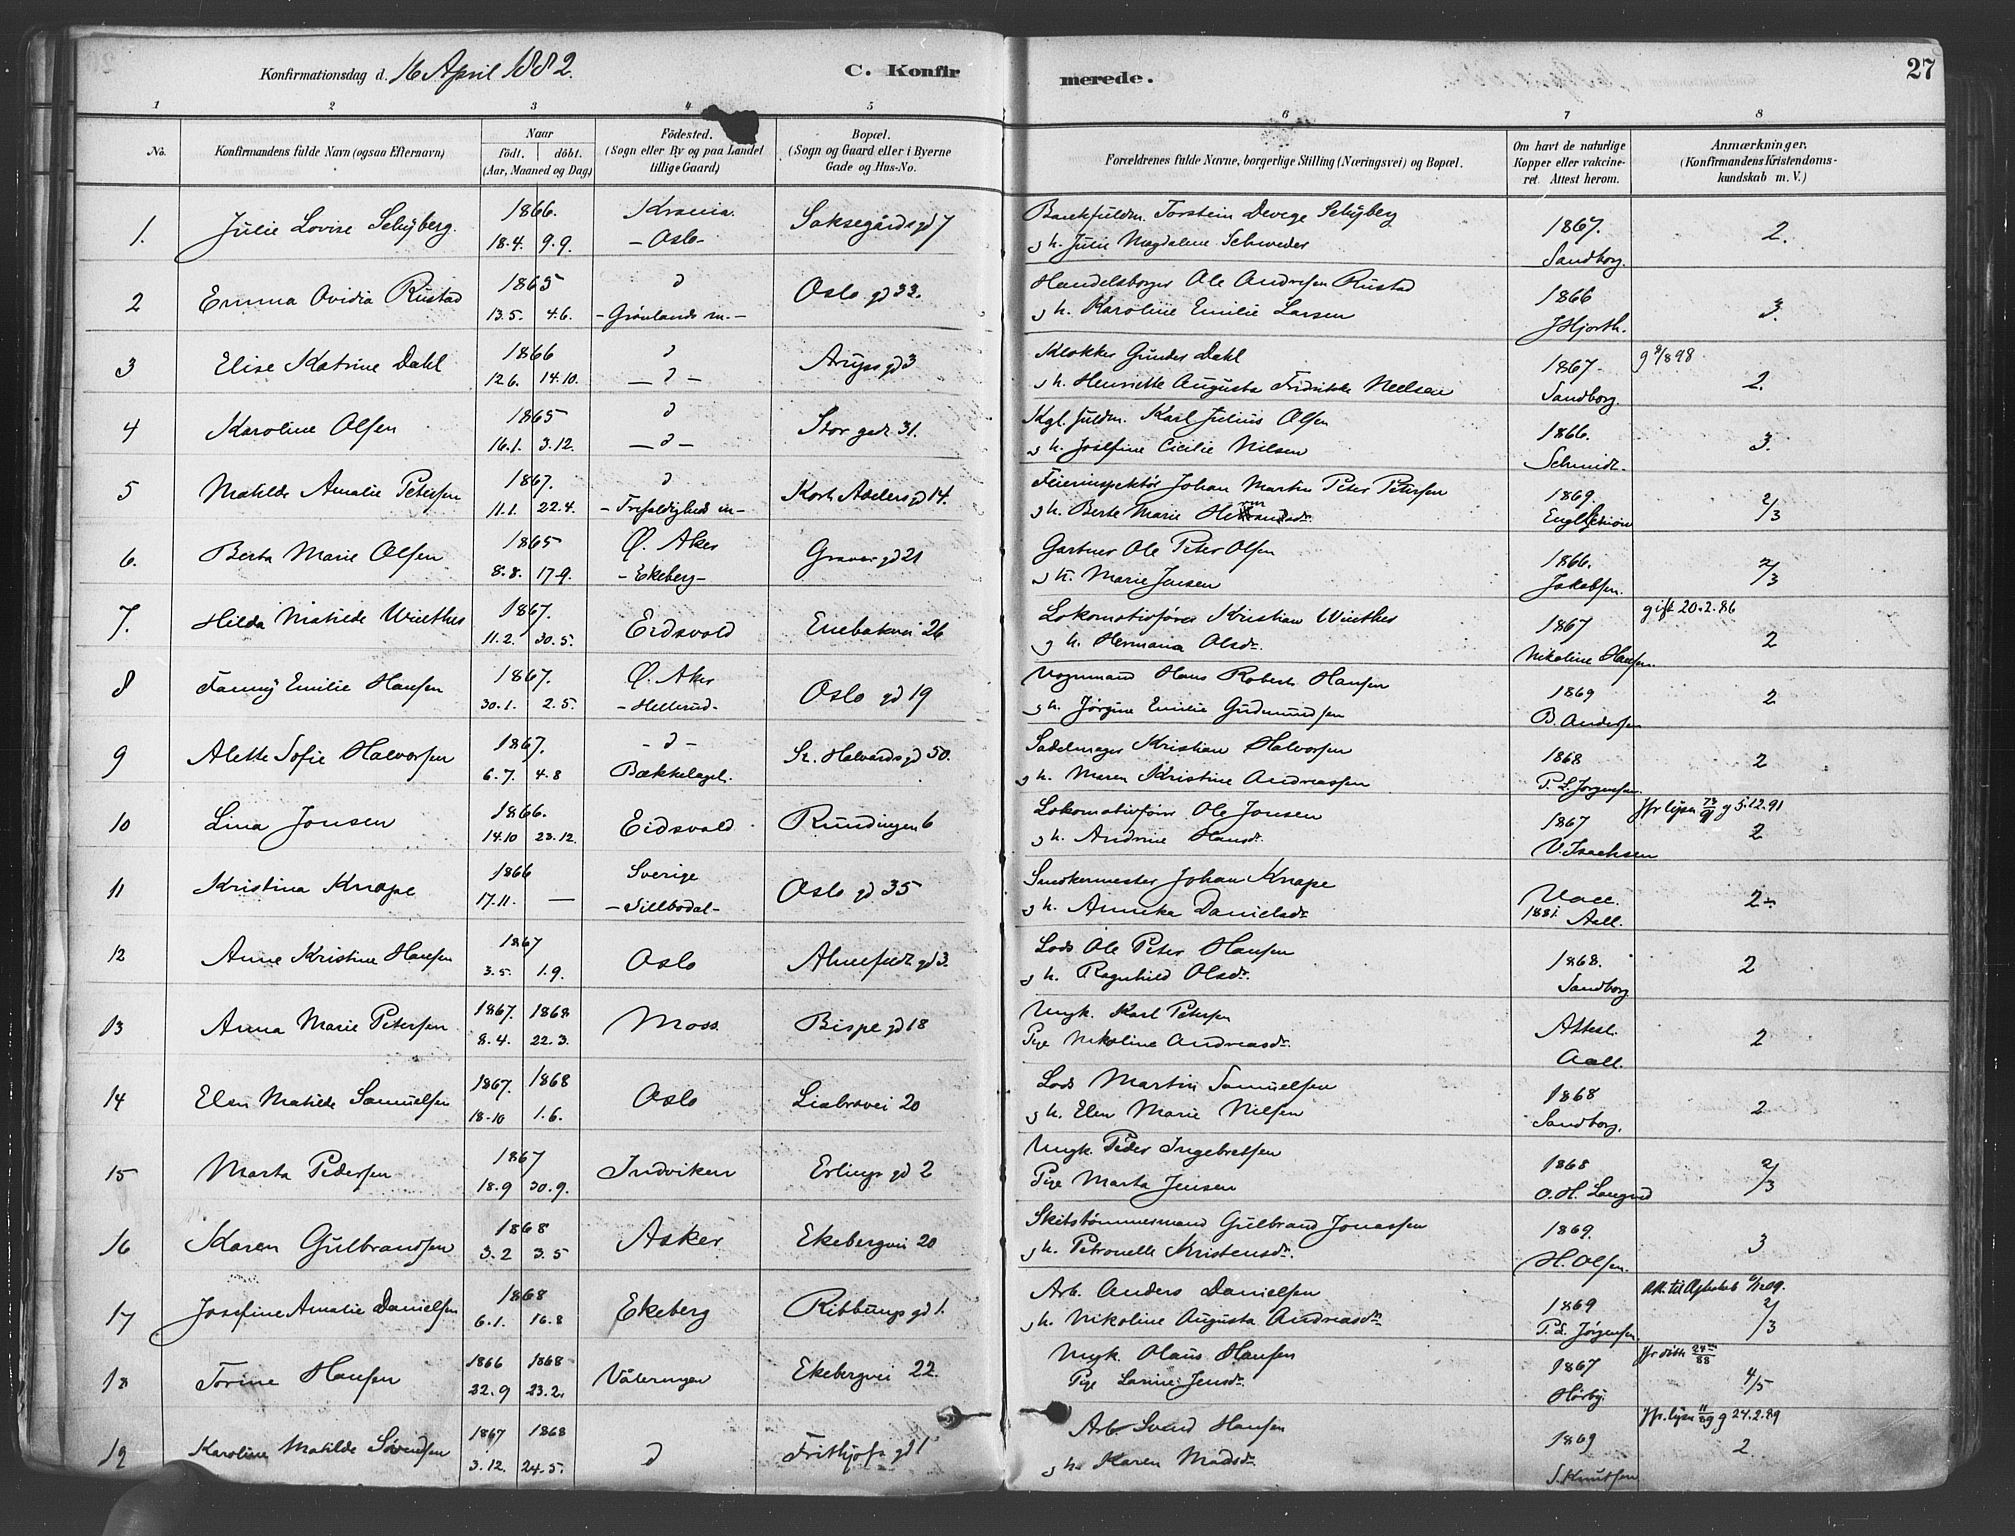 Konfirmationsdag d. 16 April 1882.
C. Konfirmerede.
27
1 2 3 4 5 6 7 8
No.
Konfirmandens fulde Navn (ogsaa Efternavn)
Naar
födt. döbt.
(Aar, Maaned og Dag)
Födested.
(Sogn eller By og paa Landet tillige Gaard)
Bopæl.
(Sogn og Gaard eller i Byerne Gade og Hus-No.
Forældrenes fulde Navne, borgerlige Stilling (Næringsvei) og Bopæl.
Om havt de naturlige Kopper eller vakcineret. Attest herom.
Anmærkninger.
(Konfirmandens Kristendomskundskab m. V.)
1. Julie Lovise Schÿberg. 1866. 18.4. 9.9. Krania. - Oslo - Saksegårdsgd 7
Torstein Devege Schÿberg
g h. Julie Magdalene Schweder
1867. Sandborg. 2.
2 Emma Ovidia Rustad 1865 13.5. 4.6. d - Grønlands m. - Oslo gd 33.
Handelsborger Ole Andresen Rustad
g h. Karoline Emilie Larsen
1866 J Hjorth. 3.
3 Elise Katrine Dahl 1866 12.6. 14.10. d - d - Arups gd 3
Klokker Gunder Dahl
g h. Henriette Augusta Fredrikke Neelsen
1867- Sandborg. g 9/8 98 2.
4 Karoline Olsen 1865 16.1. 3.12. d - d - Stor gade 31.
Kgl. fuldm. Karl Julius Olsen
g h. Josefine Cicilie Nilsen
1866. Schmidt. 3.
5 Matilde Amalie Petersen 1867. 11.1. 22.4. d - Trefoldigheds m - Kort Adelers gd 14.
Feierinspektør Johan Martin Peter Petersen
g h. Berte Marie
1869. 2/3
6. Berta Marie Olsen 1865 8.8. 17.9. Ø. Aker - Ekeberg - Graver gd 21
Gartner Ole Peter Olsen
g h. Marie Jensen
1866. Jakobsen. 2/3
7. Hilda Matilde Winther 1867. 11.2. 30.5. Eidsvold Enebakvei 26
Lokomotivfører Kristian Winther
g h. Hermana Olsdr.
1867 Nikoline Hansen. gift 20.2.86 2
8 Fanny Emilie Hansen 1867. 30.1. 2.5. Ø. Aker - Hellerud - Oslo gd 19
Vognmand Hans Robert Hansen
g h. Jørgine Emilie Gudmundsen
1869 B. Andersen 2
9 Alette Sofie Halvorsen 1867. 6.7. 4.8 - d - Bækkelaget. St. Halvards gd 50.
Sadelmager Kristian Halvorsen
g h. Maren Kristine Andreassen
1868 P. L. Jørgensen. 2
10 Lina Jonsen 1866. 14.10 23.12. Eidsvold Rundingen 6
Lokomotivfører Ole Jonsen
g h. Andrine Hansdr.
1867 V. Isachsen Jfr lysn g 5.12.91 2
11 Kristina Knape 1866 17.11. — Sverige - Sillbodal - Oslo gd 35
Snedkermester Johan Knape
g h. Annika Danielsdr.
Vacc. 1881. Aall. 2 -
12 Anne Kristine Hansen 1867 3.5. 1.9. Oslo Ahnefeldt gd 3.
Lods Ole Peter Hansen
g h. Ragnhild Olsdr.
1868. Sandborg 2
13 Anna Marie Petersen 1867. 1868 8.4. 22.3. Moss. Bispe gd 18
Ungk. Karl Petersen
Pige Nikoline Andreasdr.
Attest. Aall. 2
14 Elen Matilde Samuelsen 1867. 1868 18.10 1.6. Oslo Liabrovei 20
Lods Martin Samuelsen
g h. Elen Marie Nilsen
1868 Sandborg. 2
15 Marta Pedersen 1867 18.9 30.9. Indviken Erlings gd 2
Ungk. Peder Ingebretsen
Pige Marta Jensen
1868 O. H. 2/3
16 Karen Gulbrandsen 1868 3.2 3.5 Asker Ekebergvei 20
Skibstømmermand Gulbrand Jonassen
g h. Petronelle Kristensdr.
1869. H. Olsen. 3
17 Josefine Amalie Danielsen 1868 6.1. 16.8 Ekeberg Ribbungs gd 1.
Arb. Anders Danielsen
g h. Nikoline Augusta Andreasdr.
1869 P. L. Jørgensen. 2/3
18 Torine Hansen 1866 1868 22.9 23.2. Vålerengen Ekebergvei 22.
Ungk. Olaus Hansen
Pige Larine Jensdr.
1867 Hørby. 4/5
19 Karoline Matilde Svendsen 1867 1868 3.12. 24.5. d Frithjofs gd 1
Arb Svend Hansen
g h. Karen Madsdr.
1869 S. Knutsen Jfr. lysn 11/2 89 g 24.2.89 2.